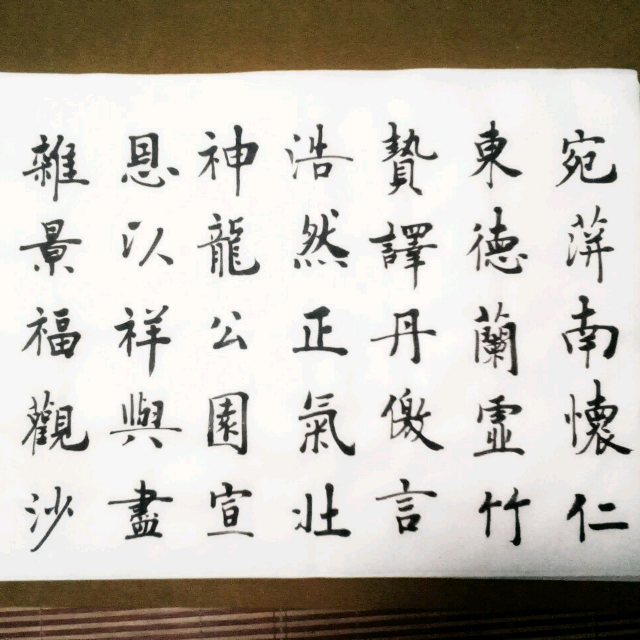 宛萍南懷仁
東德蘭虛竹
贄譯丹儌言
浩然正氣壯
神龍公園宣
恩以祥與盡
雜景福觀沙